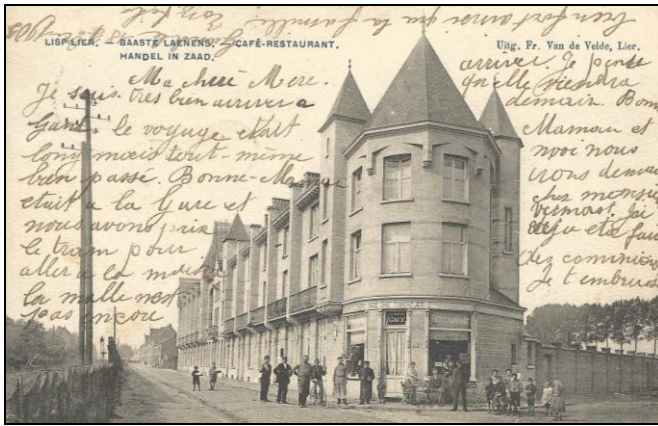 LISP-LIER. — BAASTE LAENENS. — CAFÉ-RESTAURANT.
HANDEL IN ZAAD.
Uitg. Fr. Van de Velde, Lier.
Ma cheré Mere.
Je suis tres bien arriver a
Gand le voyage etait
long mais tout-même
bien passé. Bonne-Maman
etait a la Gare et
nous avons pris
le tram pour
aller a la
la malle n'est
pas encore
arriver. Je pense
qu'elle viendra
demain. Bonne
Maman et
moi nous
irons demain
chez monsieur
j'ai
deja eté faire
des commissions
Je t'embrasse
bien fort ainsi que la famille
CAFÉ